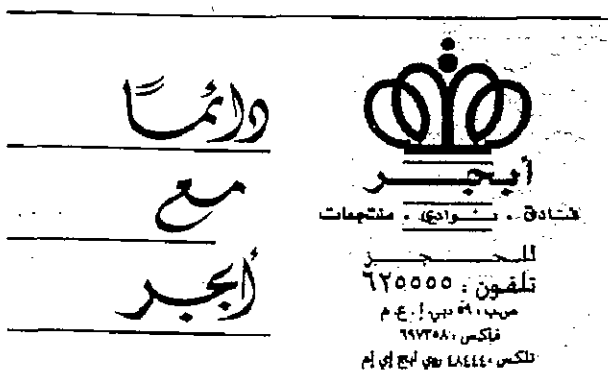 أبجر
فنادق . نوادي . منتجعات
للحجز
تلفون : ٦٢٥٥٥٥
ص.ب : ٥٩ دبي إ . ع . م
فاكس : ٦٩٧٣٥٨
تلكس : ٤٨٤٤٤ ايج إي إم
دائمًا
مع
أبجر